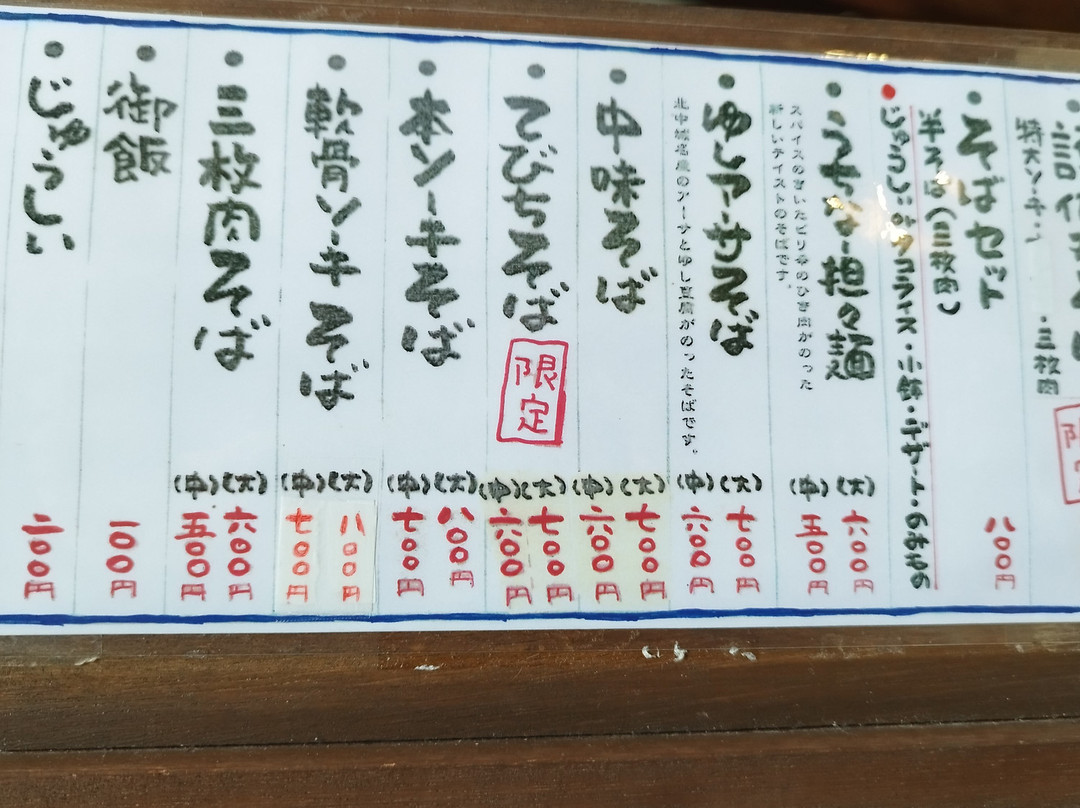 特大ソーキ
・三枚肉
●そばセット
半そば(三枚肉)
●じゅうしぃorタコライス・小鉢・デザート・のみもの
八〇〇円
●うちなー担々麺
スパイスのきいたピリ辛のひき肉がのった
新しいテイストのそばです。
(大)六〇〇円
(中)五〇〇円
●ゆしアーサそば
北中城名産のアーサとゆし豆腐がのったそばです。
(大)七〇〇円
(中)六〇〇円
●中味そば
(大)七〇〇円
(中)六〇〇円
●てびちそば
限定
(大)七〇〇円
(中)六〇〇円
●本ソーキそば
(大)八〇〇円
(中)七〇〇円
●軟骨ソーキそば
(大)八〇〇円
(中)七〇〇円
●三枚肉そば
(大)六〇〇円
(中)五〇〇円
●御飯
一〇〇円
●じゅうしい
二〇〇円